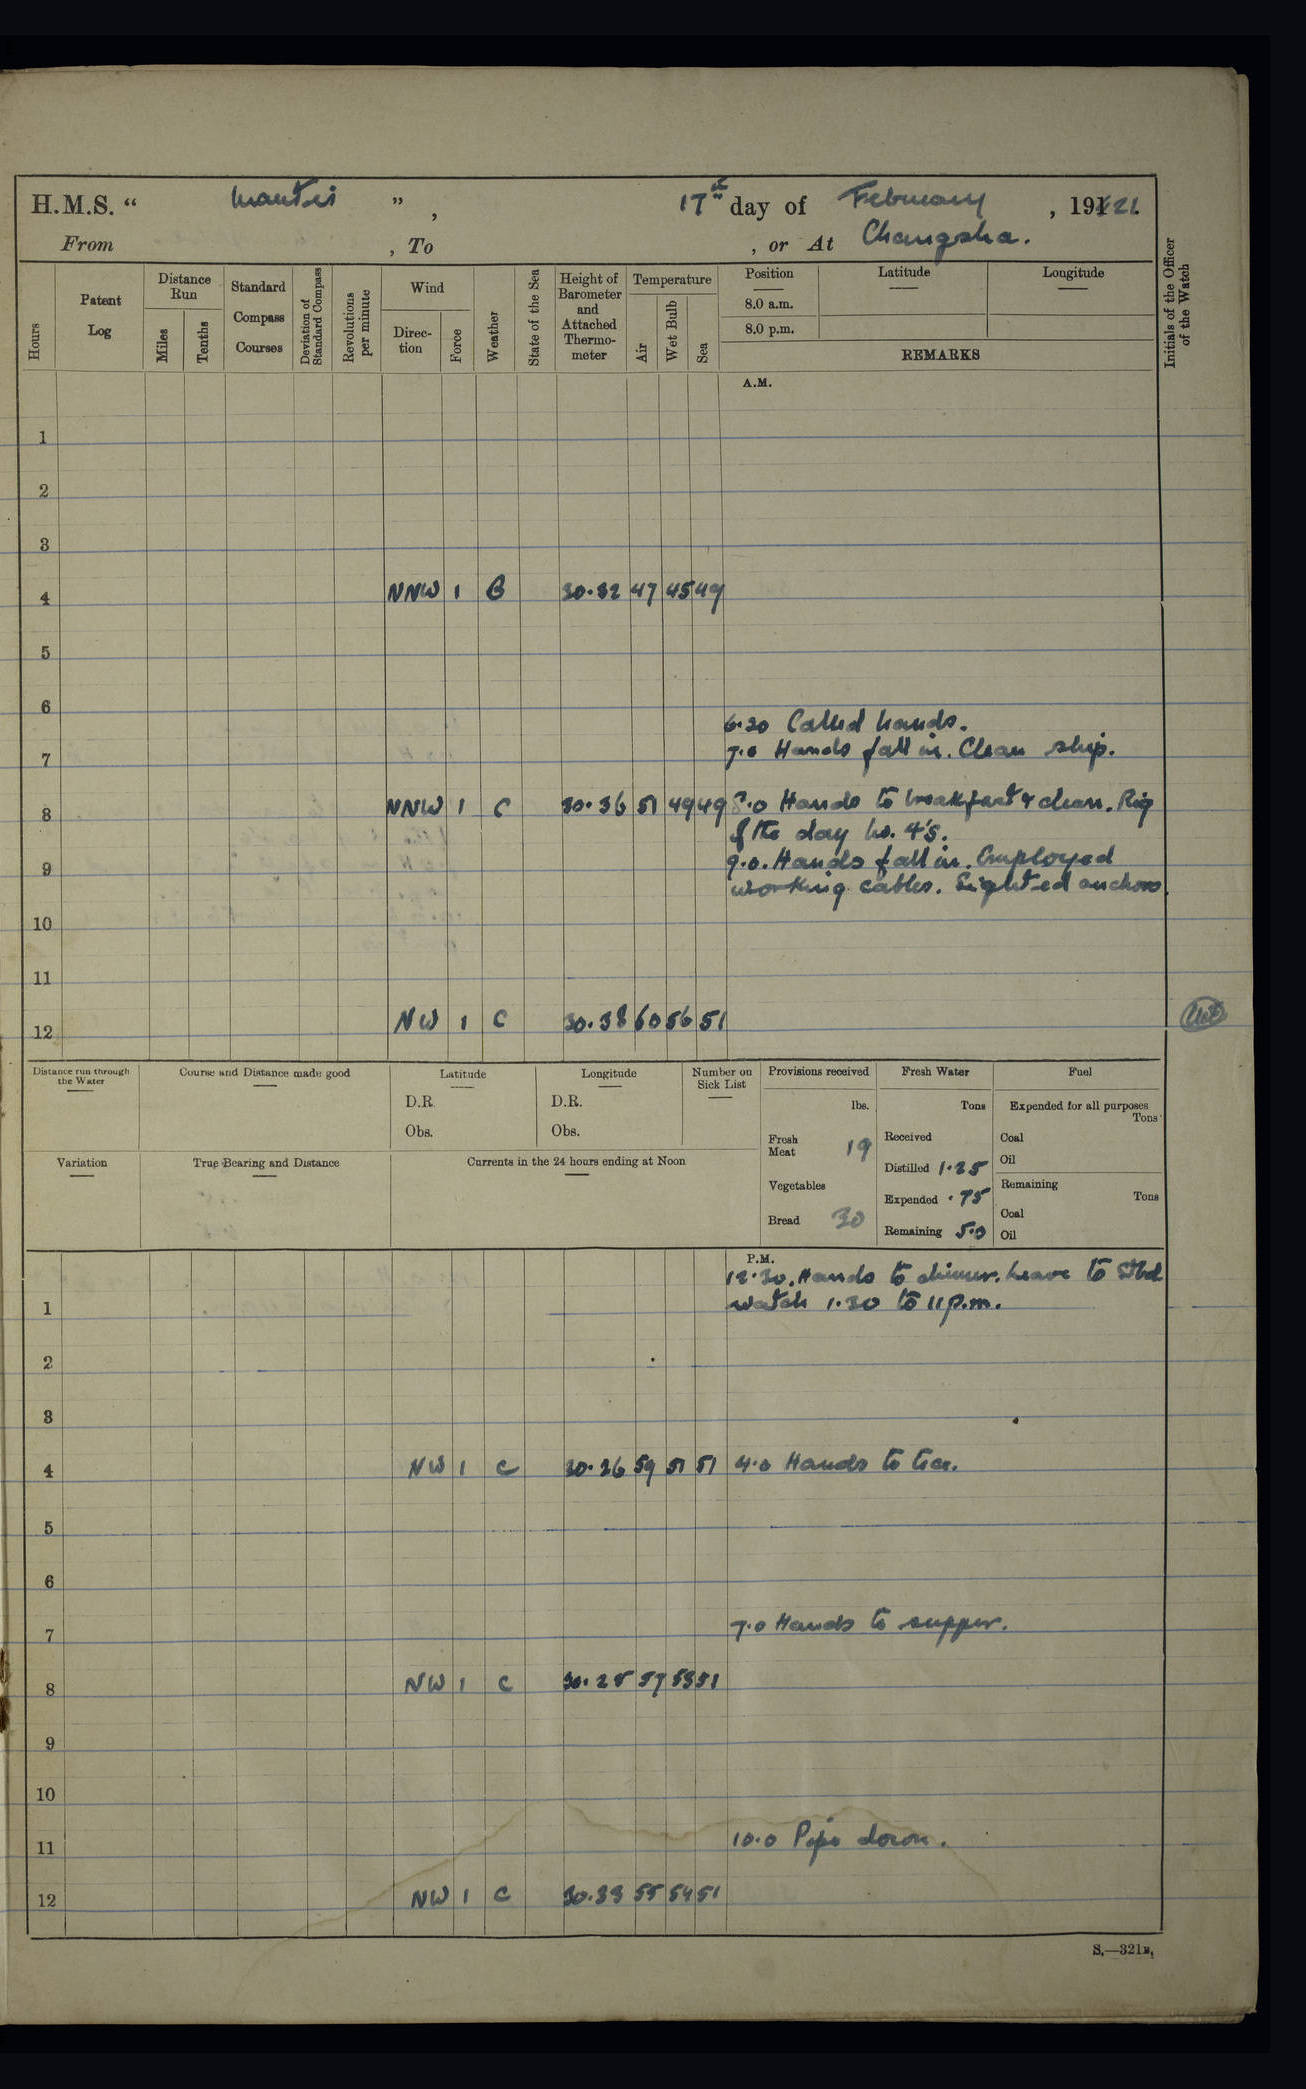 H.M.S. “ Mantis ” , 17th day of February , 1921.
From , To , or At Changsha.
Hours
Patent Log
Distance Run
Miles
Tenths
Standard Compass Courses
Deviation of Standard Compass
Revolutions per minute
Wind
Direction
Force
Weather
State of the Sea
Height of Barometer and Attached Thermometer
Temperature
Air
Wet Bulb
Sea
Position
8.0 a.m.
8.0 p.m.
Latitude
Longitude
REMARKS
Initials of the Officer of the Watch
A.M.
1
2
3
4 NNW 1 B 30.32 47 45 49
5
6
6.30 Called hands.
7 7.0 Hands fall in. Clean ship.
8 NNW 1 C 30.36 51 49 49 8.0 Hands to breakfast & clean. Rig
of the day No. 4's.
9 9.0. Hands fall in. Employed
working cables. Sighted anchors.
10
11
12 NW 1 C 30.38 60 56 51
Distance run through the Water
Course and Distance made good
Latitude
D.R.
Obs.
Longitude
D.R.
Obs.
Number on Sick List
Provisions received
lbs.
Fresh Meat 19
Vegetables
Bread 30
Fresh Water
Tons
Received
Distilled 1.25
Expended .75
Remaining 5.0
Fuel
Expended for all purposes
Tons
Coal
Oil
Remaining
Tons
Coal
Oil
Variation
True Bearing and Distance
Currents in the 24 hours ending at Noon
P.M.
12.30. Hands to dinner. Leave to Stbd
1 watch 1.30 to 11 p.m.
2
3
4 NW 1 C 30.26 59 51 51 4.0 Hands to tea.
5
6
7 7.0 Hands to supper.
8 NW 1 C 30.25 57 53 51
9
10
11 10.0 Pipe down.
12 NW 1 C 30.33 55 54 51
S.—321B.